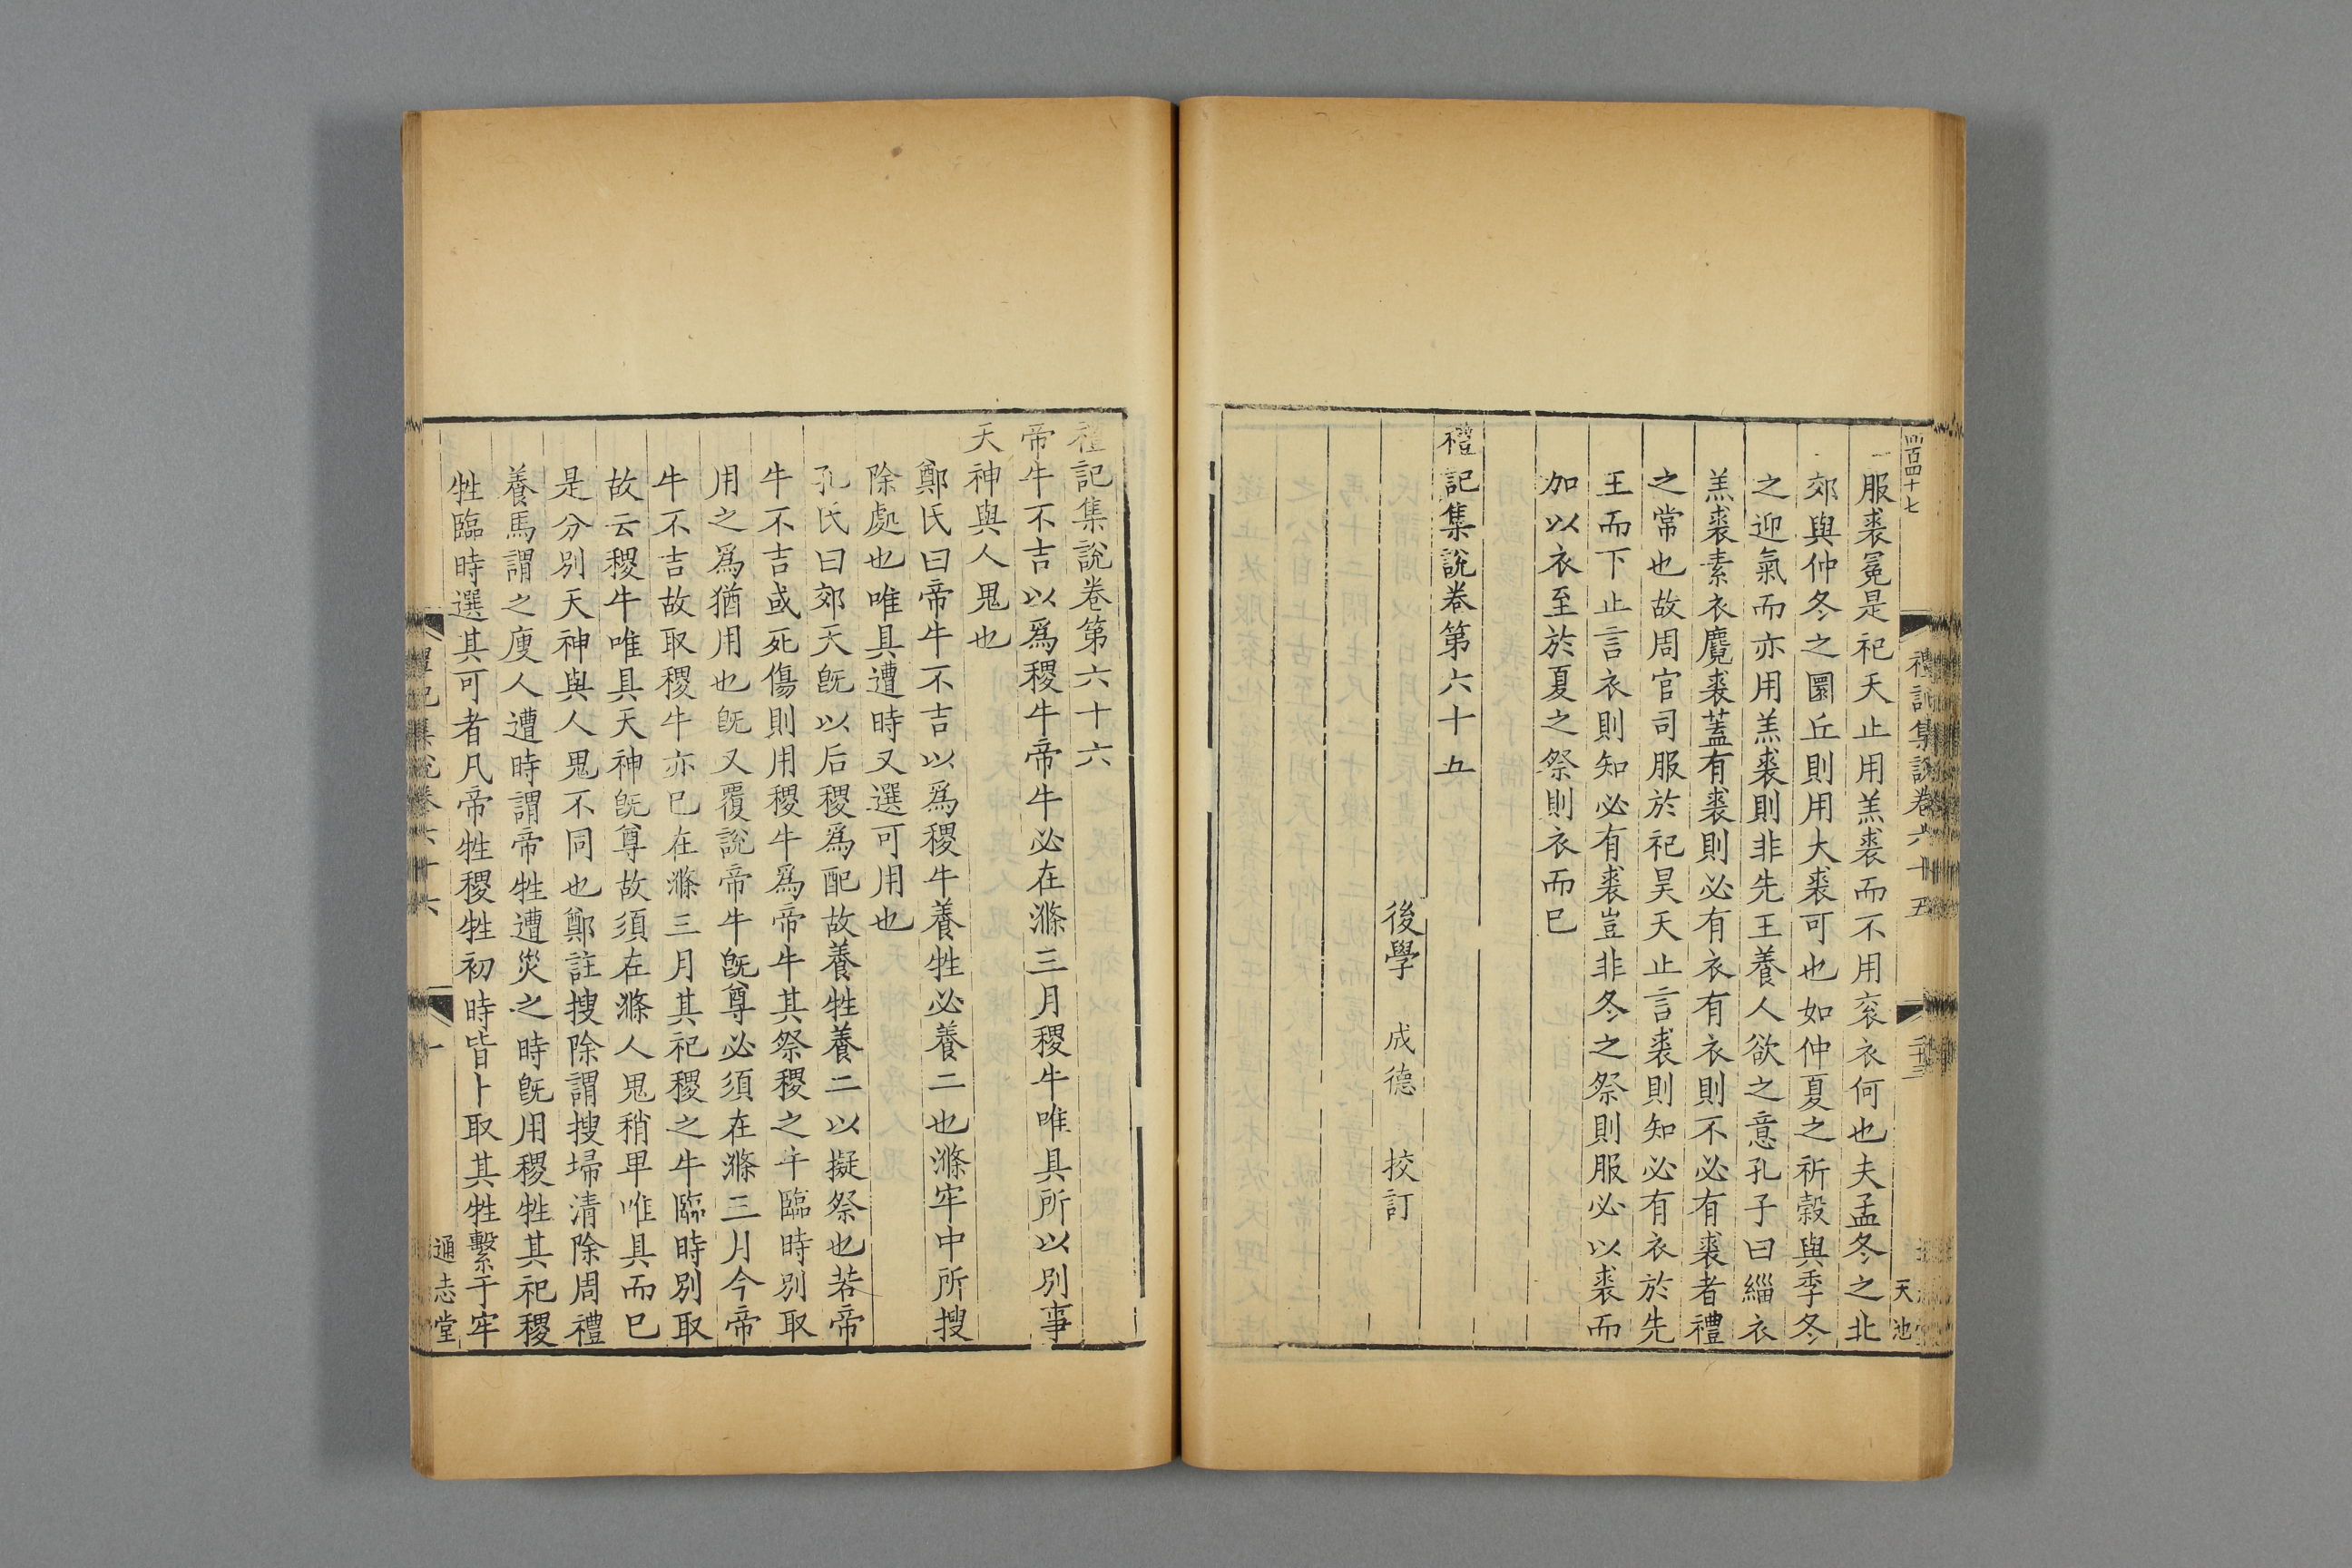 四百四十七
禮記集說卷六十五
天池
服裘冕是祀天止用羔裘而不用衮衣何也夫孟冬之北
郊與仲冬之圜丘則用大裘可也如仲夏之祈穀與季冬
之迎氣而亦用羔裘則非先王養人欲之意孔子曰緇衣
羔裘素衣麑裘蓋有裘則必有衣有衣則不必有裘者禮
之常也故周官司服於祀昊天止言裘則知必有衣於先
王而下止言衣則知必有裘豈非冬之祭則服必以裘而
加以衣至於夏之祭則衣而已
禮記集說卷第六十五
後學 成德 挍訂
禮記集說卷第六十六
帝牛不吉以爲稷牛帝牛必在滌三月稷牛唯具所以別事
天神與人鬼也
鄭氏曰帝牛不吉以爲稷牛養牲必養二也滌牢中所搜
除處也唯具遭時又選可用也
孔氏曰郊天旣以后稷爲配故養牲養二以擬祭也若帝
牛不吉或死傷則用稷牛爲帝牛其祭稷之牛臨時別取
用之爲猶用也旣又覆說帝牛旣尊必須在滌三月今帝
牛不吉故取稷牛亦已在滌三月其祀稷之牛臨時別取
故云稷牛唯具天神旣尊故須在滌人鬼稍卑唯具而已
是分別天神與人鬼不同也鄭註搜除謂搜埽清除周禮
養馬謂之廋人遭時謂帝牲遭災之時旣用稷牲其祀稷
牲臨時選其可者凡帝牲稷牲初時皆卜取其牲繫于牢
禮記集說卷六十六
一
通志堂